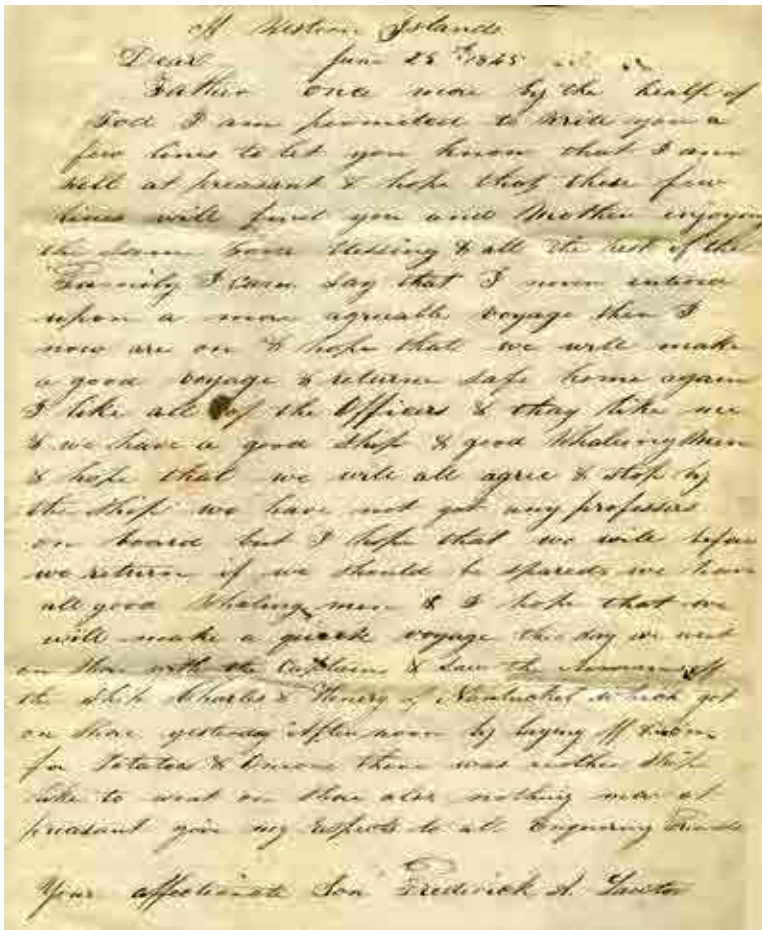 Western Islands
Dear June 25th 1845
Father once more by the healp of
God I am permited to write you a
few lines to let you know that I am
well at preasant & hope that these few
lines will find you and Mother enjoying
the same blessing & all the rest of the
Family I can say that I never entered
upon a more agreable voyage then I
now are on & hope that we will make
a good voyage & returne safe home again
I like all of the Officers & thay like me
& we have a good ship & good Whaleing Men
& hope that we will all agree & stop by
the ship we have not got any professors
on board but I hope that we will before
we return if we should be spared we have
all good Whaling men & I hope that we
will make a quick voyage this day we went
on shore with the Captains & saw the
the ship Charles & Henery of Nantucket which got
on shore yesterday afternoon by laying off &
for Potatoes & Onions there was another ship
like to went on shore also nothing more at
preasant give my respects to all Enquiring Friends
Your affectionate Son Frederick A. Lawton